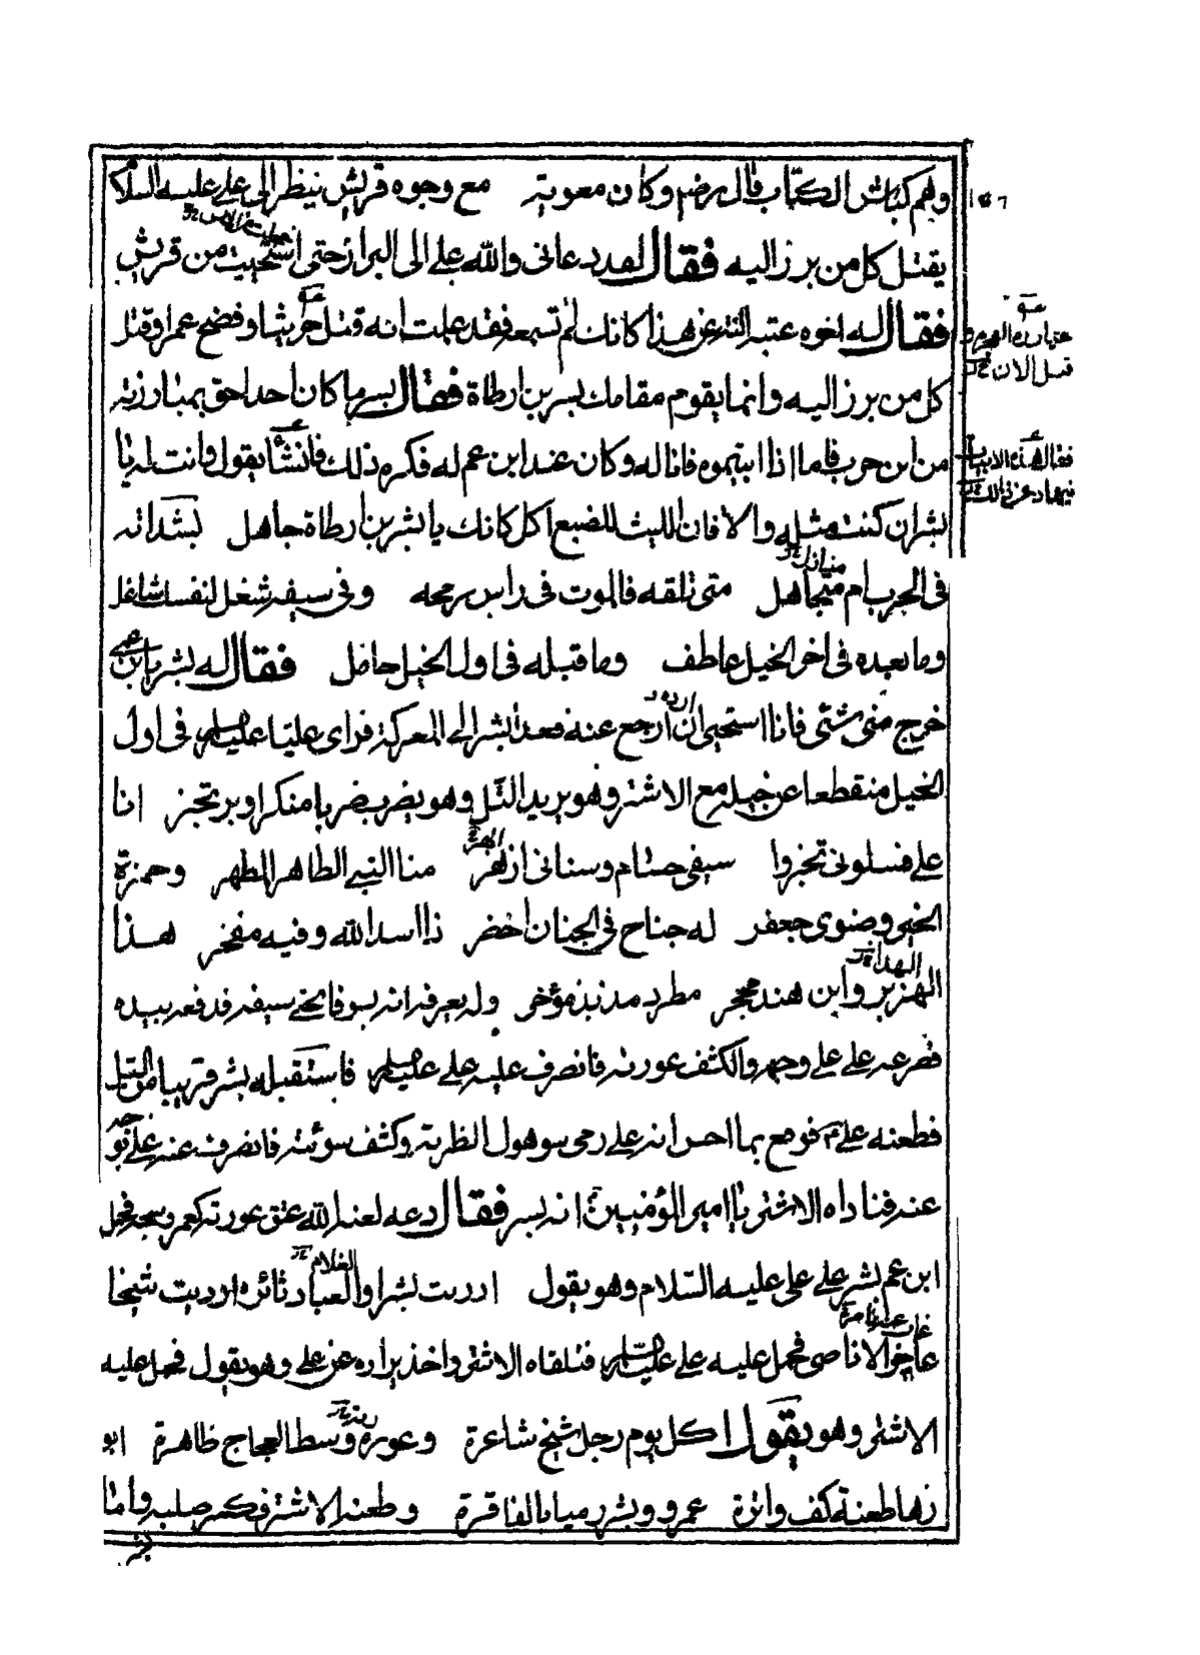 وهم كباش الكتاب قال نصر وكان معوية مع وجوه قريش ينظر الى علي عليه السلام
يقتل كل من برز اليه فقال لقد دعاني والله علي الى البراز حتى استحييت من قريش
فقال له اخوه عتبة اله عن هذا كانك لم تسمعه فقد علمت انه قتل حريثا وفضح عمرا وقتل
كل من برز اليه وانما يقوم مقامك بسر بن ارطاة فقال بسر ما كان احد احق بمبارزته
من ابن حرب فاما اذا ابيتموه فانا له وكان عند ابن عم له فكره ذلك فانشأ يقول وانت له يا
بشر ان كنت مثله والا فان الليث للضبع اكل كانك يا بشر بن ارطاة جاهل بشداته
في الحرب ام متجاهل متى تلقه فالموت في راس رمحه وفي سيفه شغل لنفسك شاغل
وما بعده في اخر الخيل عاطف وما قبله في اول الخيل حامل فقال له بشر يا ابن عمي
خرج مني شئ فانا استحيي ان ارجع عنه فغدا بشر الى المعركة فراى عليا عليه السلام في اول
الخيل منقطعا عن خيله مع الاشتر وهو يريد التل وهو يضرب ضربا منكرا ويرتجز انا
علي فسلوني تخبروا سيفي حسام وسناني ازهر منا النبي الطاهر المطهر وحمزة
الخير وصنوى جعفر له جناح في الجنان اخضر ذا اسد الله وفيه مفخر هذا
الهزبر وابن هند محجر مطرد مذبذب مؤخر ولم يعرفه انه بسر فانحى سيفه فدفعه بيده
فصرعه علي على وجهه وانكشف عورته فانصرف عليه علي عليه السلام فاستقبله بشر قريبا من التل
فطعنه علي فوقع بما احس انه علي رمى سوهول الظربة وكشف سوئته فانصرف عنه علي
عنه فناداه الاشتر يا امير المؤمنين انه بسر فقال دعه لعنه الله عتق عورته كعمرو
ابن عم بشر على علي عليه السلام وهو يقول ارديت بشرا والعباد ثائره ارديت شيخا
غاب عنه ناصره
عاجزا لا ناصر فحمل عليه علي عليه السلام فتلقاه الاشتر واخذ براره عن علي وهو يقول فحمل عليه
الاشتر وهو يقول اكل يوم رجل شيخ شاغرة وعورة وسط العجاج ظاهرة ابو
زها طعنة كف واترة عمرو وبشر رميا بالفاقرة وطعنه الاشتر فكسر صلبه واما
بشر
فقال هذه الابيات